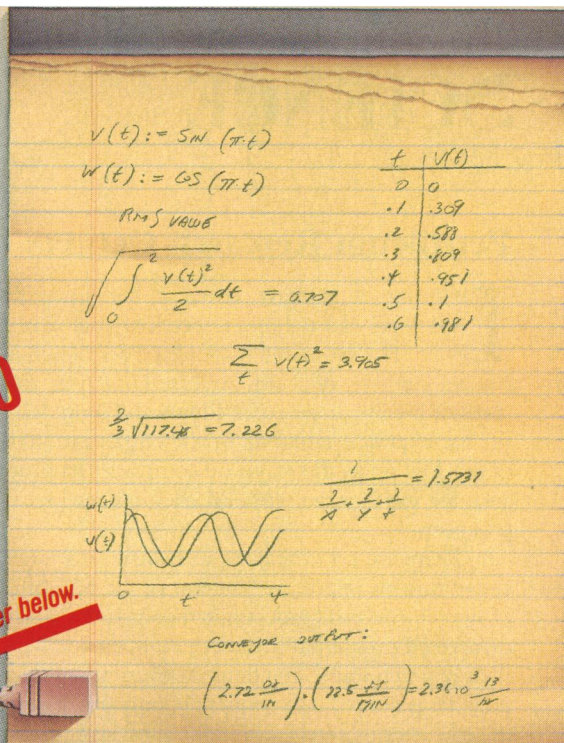 v(t) := SIN (π·t)
W(t) := COS (π·t)
RMS VALUE
√ ∫ 0 2 v(t)²/2 dt = 0.707
t | V(t)
0 | 0
.1 | .309
.2 | .588
.3 | .809
.4 | .951
.5 | .1
.6 | .981
∑ t v(t)² = 3.905
2/3 √117.48 = 7.226
1 / (1/x + 1/y + 1/z) = 1.5731
w(t)
v(t)
0 t 4
er below.
CONVEYOR OUTPUT:
(2.72 oz/in)·(72.5 ft/MIN) =